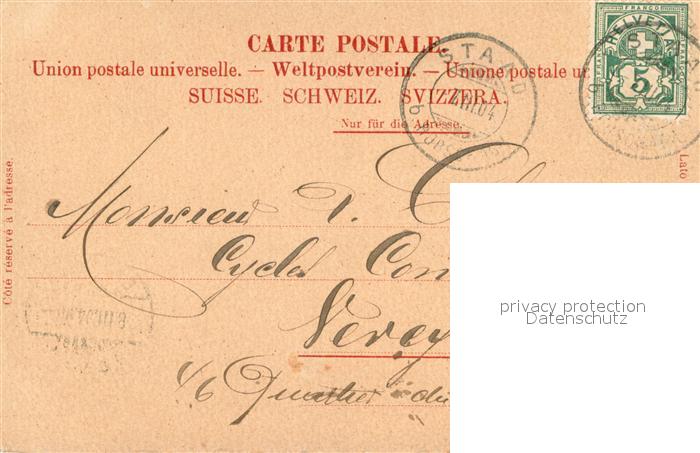 CARTE POSTALE.
Union postale universelle. — Weltpostverein. — Unione postale ur
SUISSE. SCHWEIZ. SVIZZERA.
Nur für die Adresse.
STAAD
HELVETIA
FRANCO
5
Côté réservé à l'adresse.
Lato
Monsieur
Cycles
Vevey
46 Quartier du
privacy protection
Datenschutz